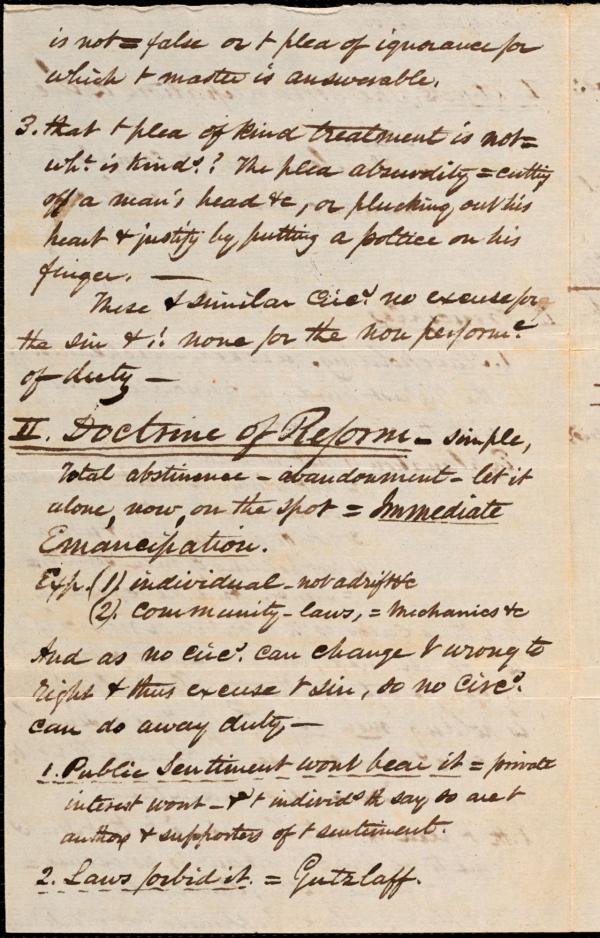 is not = false or t plea of ignorance for
which t master is answerable.
3. that t plea of kind treatment is not =
wht. is kinds.? The plea absurdity = cutting
off a man's head &c, or plucking out his
heart & justify by putting a poltice on his
finger. —
These & similar Circs. no excuse for
the sin & .'. none for the non performce.
of duty —
II. Doctrine of Reform - simple,
Total abstinence - abandonment - let it
alone, now, on the spot = Immediate
Emancipation.
Exp. (1) individual - not adrift &c
(2). Community - laws, = Mechanics &c
And as no circs. can change t wrong to
right & thus excuse t sin, so no Circs.
can do away duty, —
1. Public Sentiment wont bear it = private
interest wont - & t individs th say so are t
authors & supporters of t sentiment.
2. Laws forbid it. = Gutzlaff.